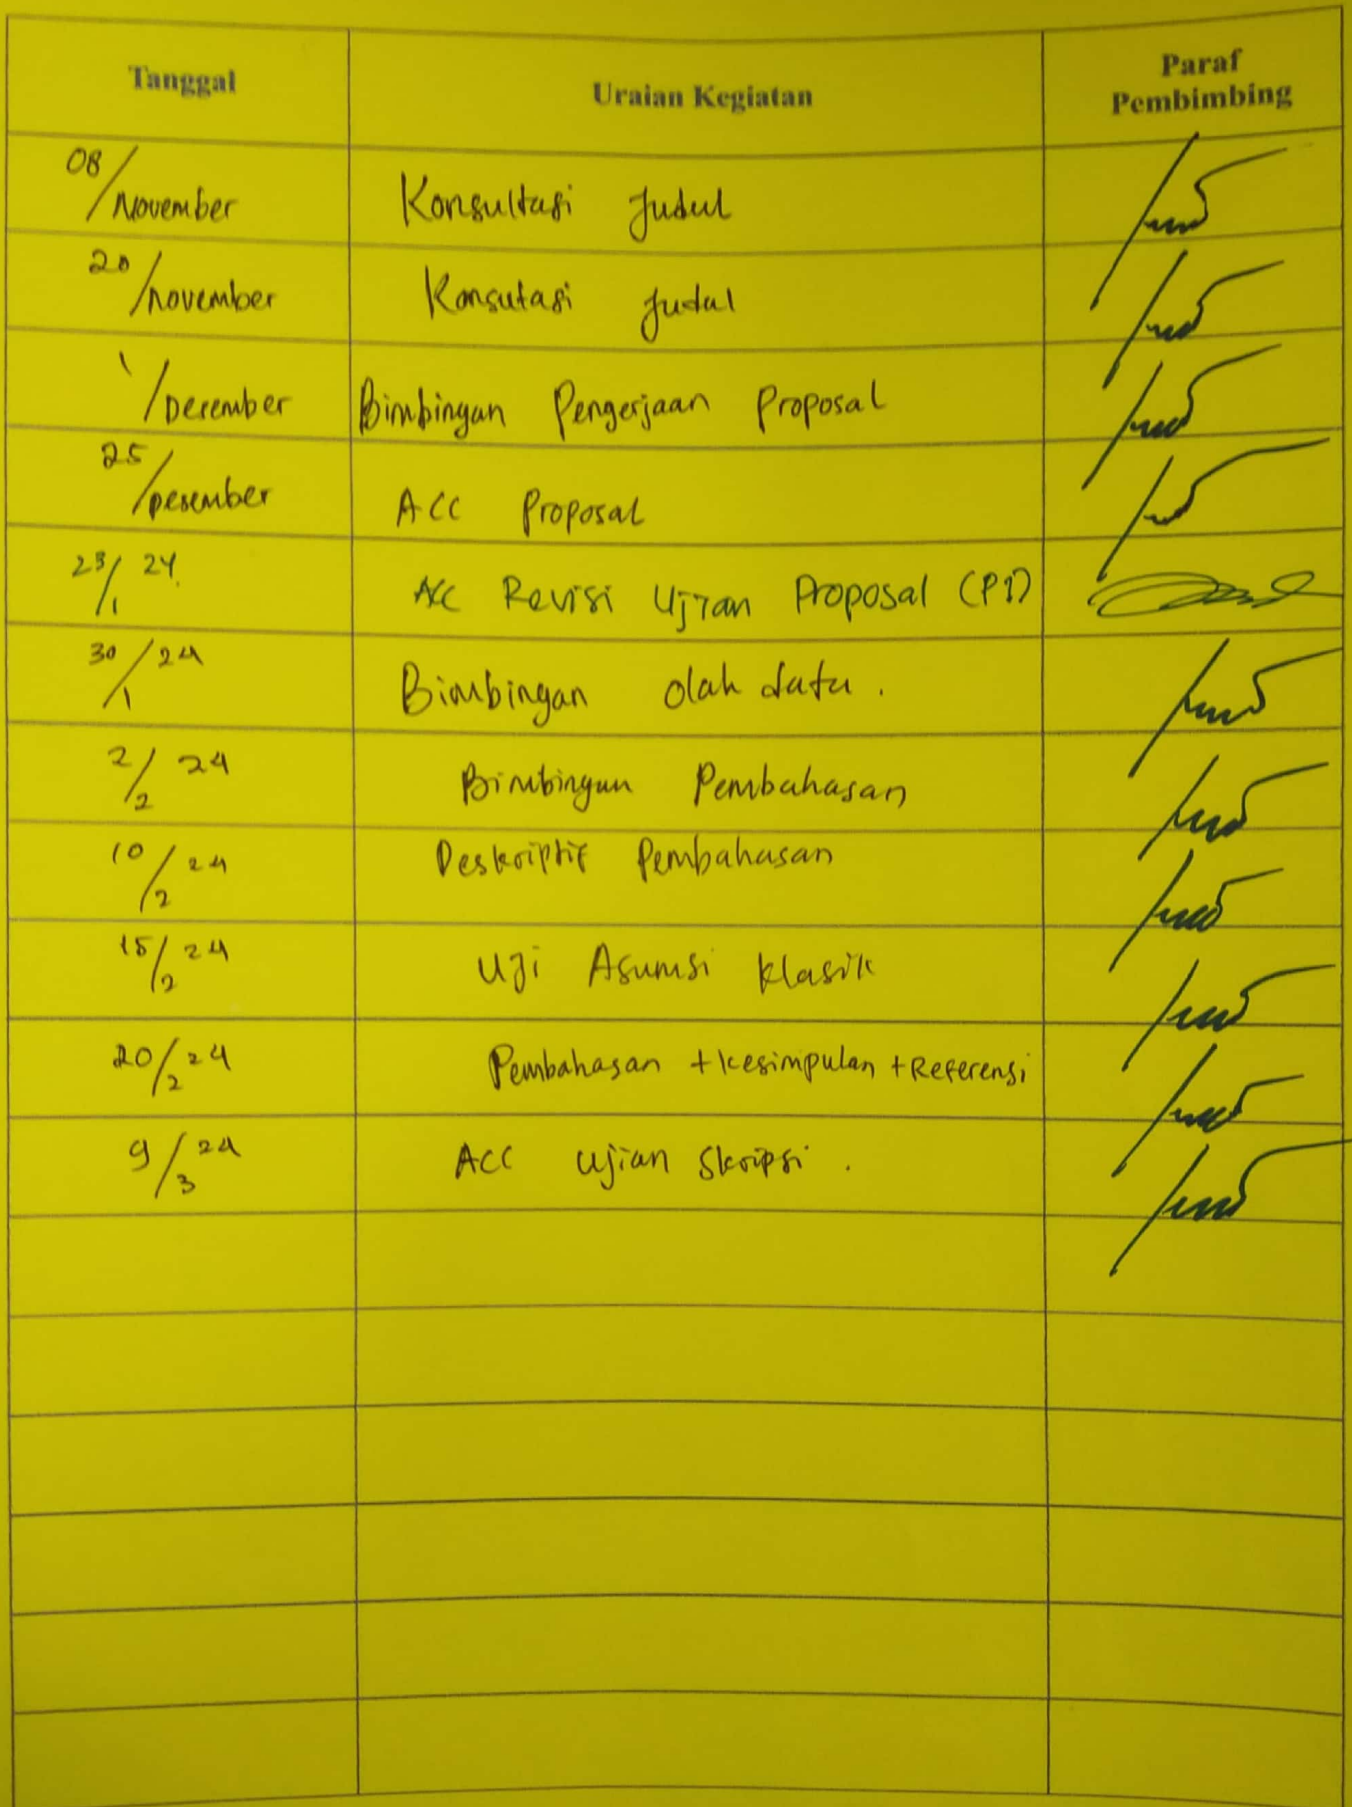 Tanggal Uraian Kegiatan Paraf Pembimbing
08/November Konsultasi Judul
20/november Konsutasi Judul
1/Desember Bimbingan Pengerjaan Proposal
25/Desember ACC Proposal
23/1 24 ACC Revisi Ujian Proposal (P1)
30/1 24 Bimbingan olah data.
2/2 24 Bimbingan Pembahasan
10/2 24 Deskriptif Pembahasan
15/2 24 Uji Asumsi klasik
20/2 24 Pembahasan + kesimpulan + Referensi
9/3 24 ACC Ujian Skripsi.